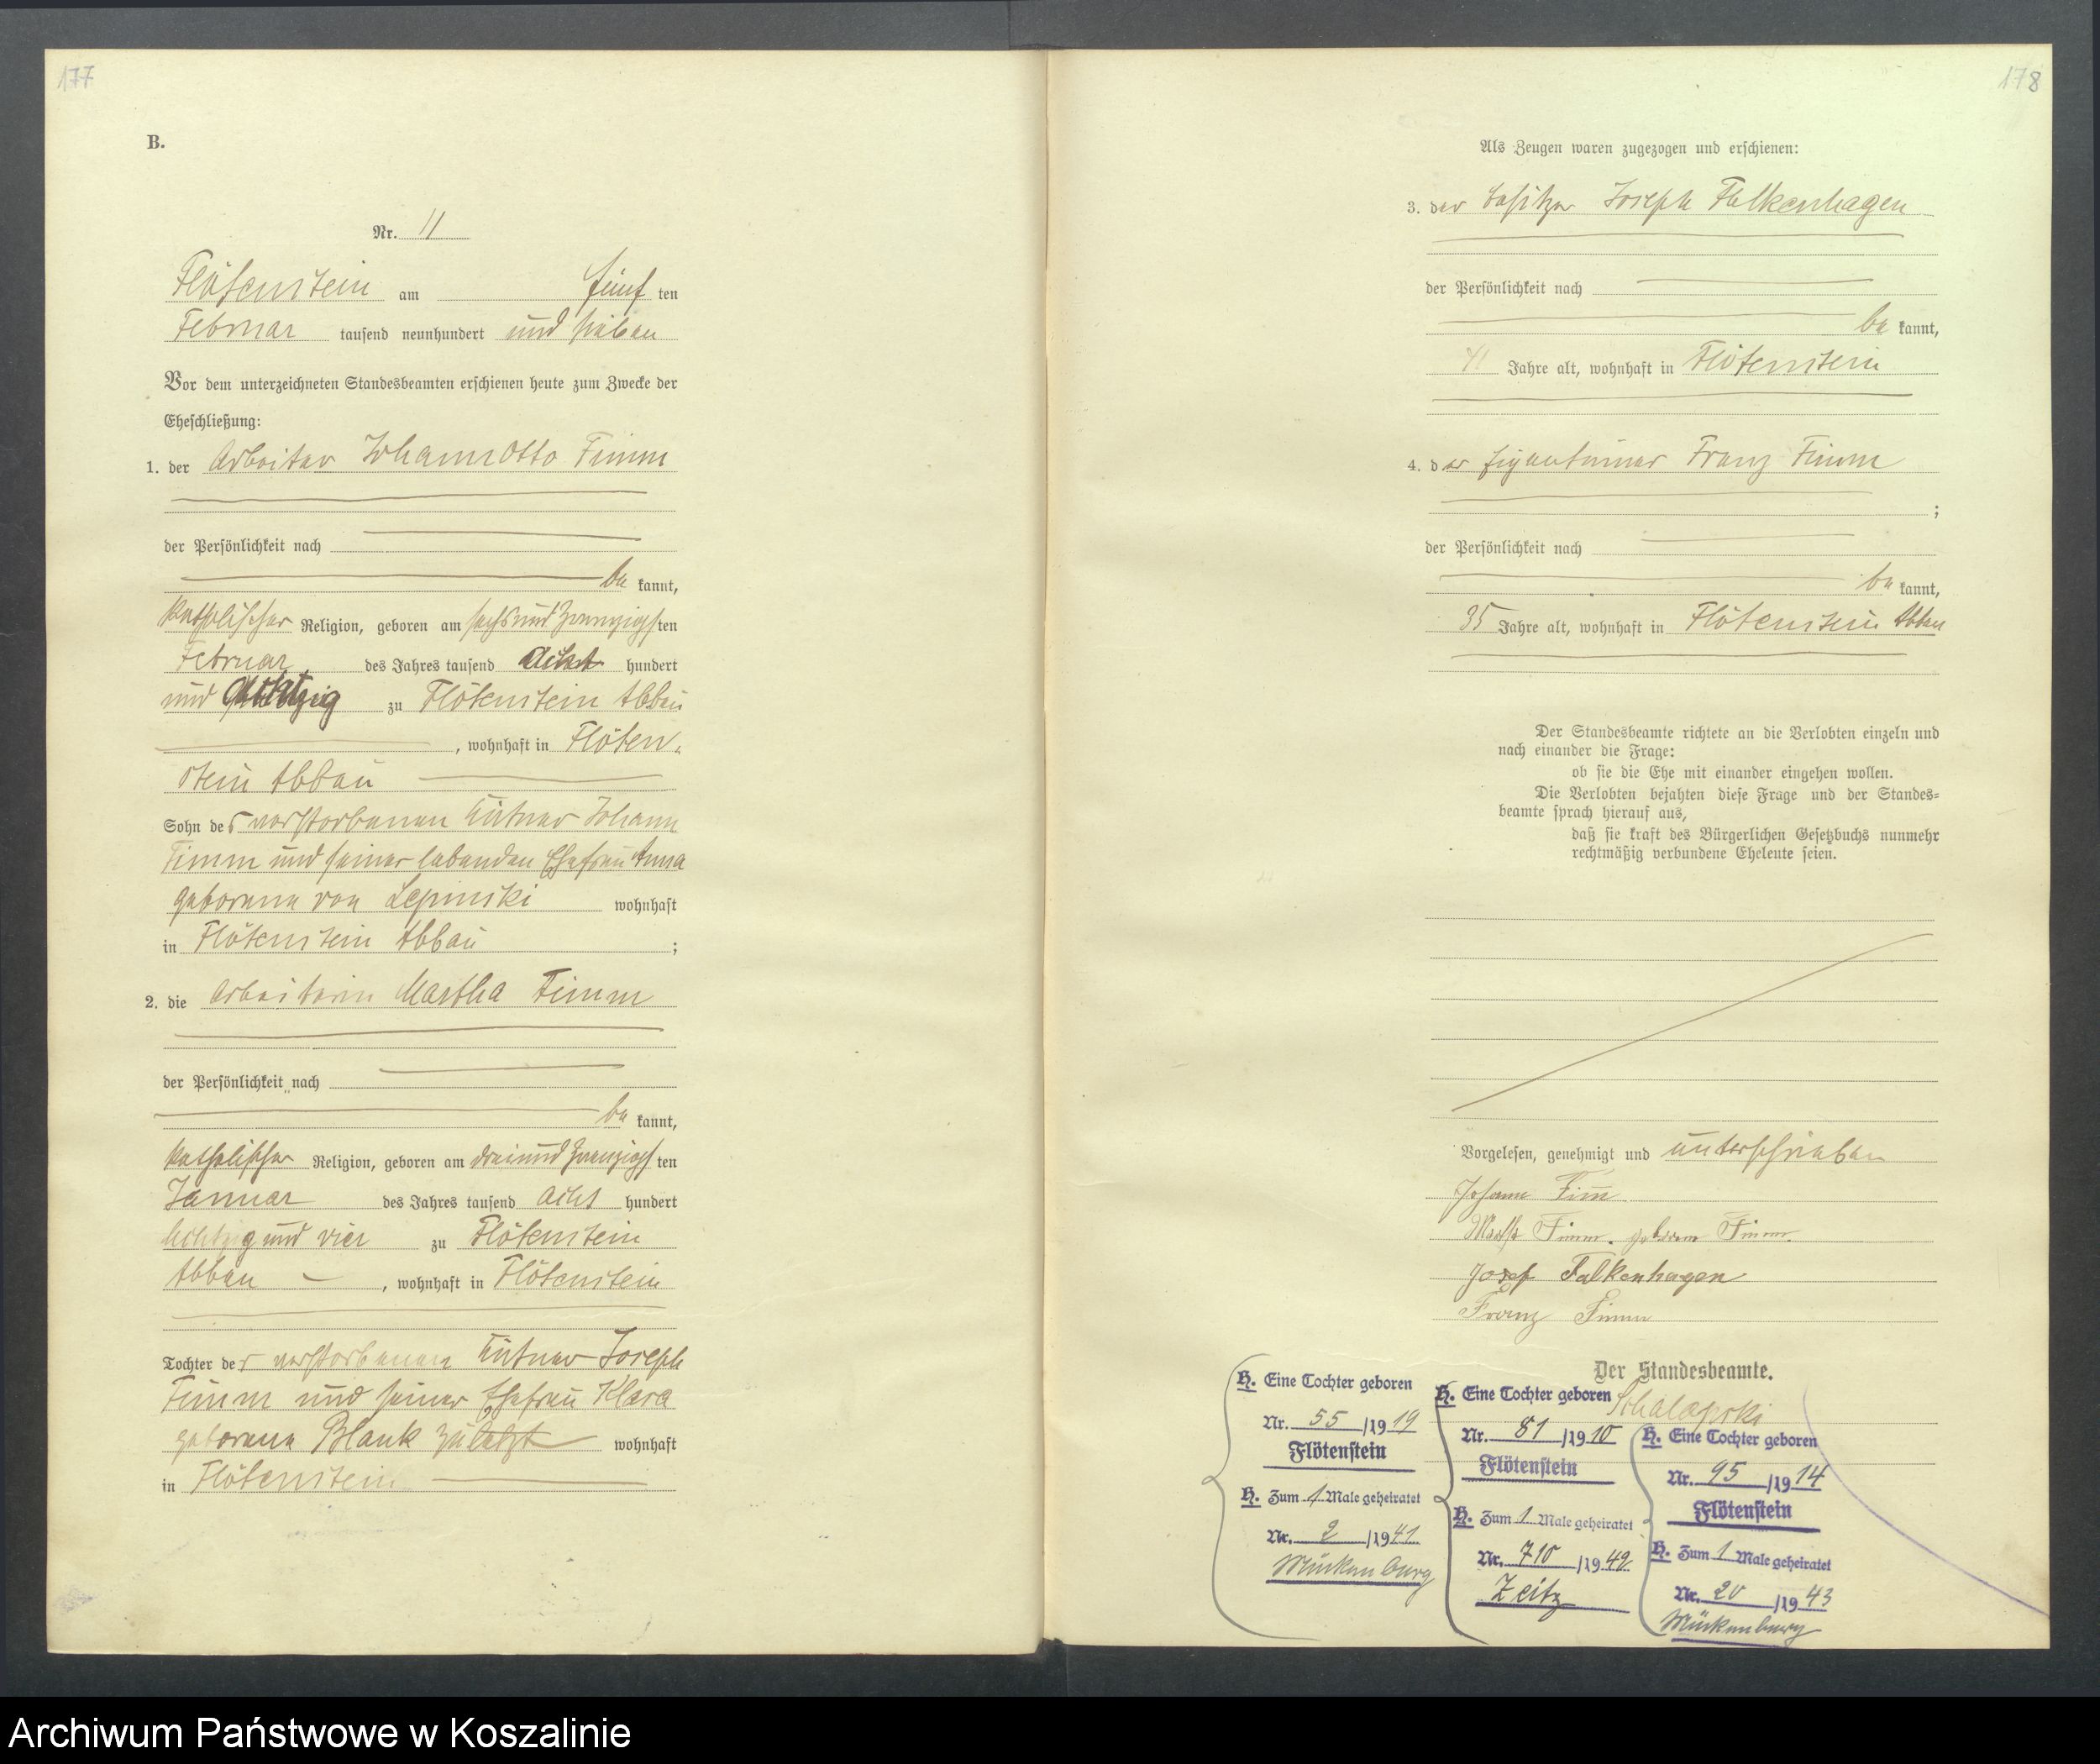 177
B.
Nr. 11
Flötenstein am fünf ten
Februar tausend neunhundert und sieben
Vor dem unterzeichneten Standesbeamten erschienen heute zum Zwecke der
Eheschließung:
1. der Arbeiter Johann Otto Timm
der Persönlichkeit nach
be kannt,
katholischer Religion, geboren am sechsundzwanzigsten
Februar des Jahres tausend Acht hundert
und achtzig zu Flötenstein Abbau
, wohnhaft in Flöten-
stein Abbau
Sohn des verstorbenen Kätner Johann
Timm und seiner lebenden Ehefrau Anna
geborene von Lepinski wohnhaft
in Flötenstein Abbau ;
2. die Arbeiterin Martha Timm
der Persönlichkeit nach
be kannt,
katholischer Religion, geboren am dreiundzwanzigsten
Januar des Jahres tausend Acht hundert
Achtzig und vier zu Flötenstein
Abbau , wohnhaft in Flötenstein
Tochter des verstorbenen Kätner Joseph
Timm und seiner Ehefrau Klara
geborene Blank zuletzt wohnhaft
in Flötenstein
178
Als Zeugen waren zugezogen und erschienen:
3. der Besitzer Joseph Falkenhagen
der Persönlichkeit nach
be kannt,
41 Jahre alt, wohnhaft in Flötenstein
4. der Eigentümer Franz Timm
;
der Persönlichkeit nach
be kannt,
35 Jahre alt, wohnhaft in Flötenstein Abbau
Der Standesbeamte richtete an die Verlobten einzeln und
nach einander die Frage:
ob sie die Ehe mit einander eingehen wollen.
Die Verlobten bejahten diese Frage und der Standes-
beamte sprach hierauf aus,
daß sie kraft des Bürgerlichen Gesetzbuchs nunmehr
rechtmäßig verbundene Eheleute seien.
Vorgelesen, genehmigt und unterschrieben
Johann Timm
Martha Timm. geborene Timm.
Josef Falkenhagen
Franz Timm
Der Standesbeamte.
H. Eine Tochter geboren
Nr. 55 /1919
Flötenstein
H. Zum 1 Male geheiratet
Nr. 2 /1941
Mückenburg
H. Eine Tochter geboren
Nr. 81 /1910
Flötenstein
H. Zum 1 Male geheiratet
Nr. 710 /1942
Zeitz
H. Eine Tochter geboren
Nr. 95 /1914
Flötenstein
H. Zum 1 Male geheiratet
Nr. 20 /1943
Mückenburg
Archiwum Państwowe w Koszalinie